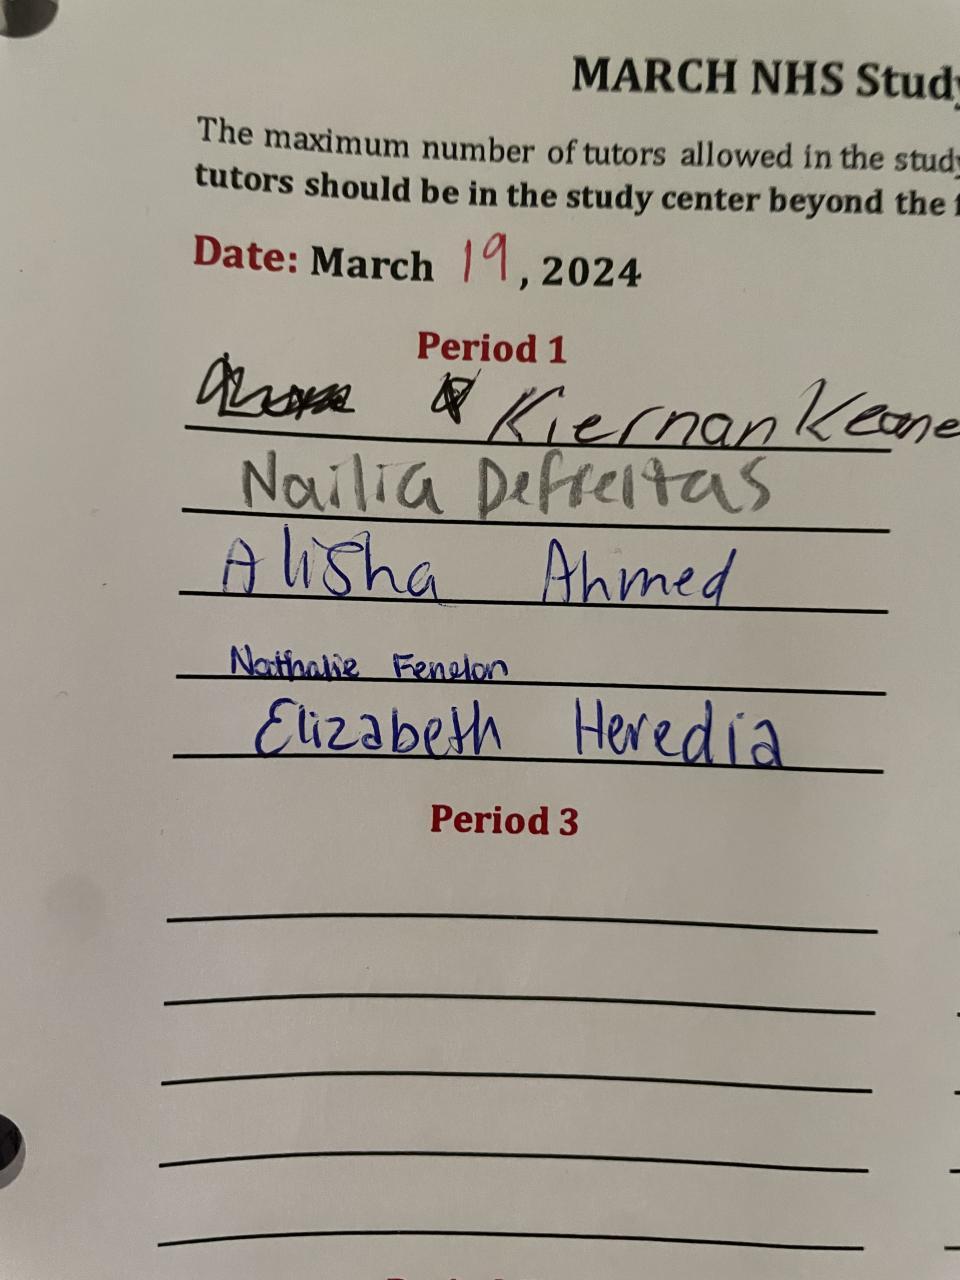 MARCH NHS Study
The maximum number of tutors allowed in the study
tutors should be in the study center beyond the f
Date: March 19, 2024
Period 1
Kiernan Keane
Nailia Defreitas
Alisha Ahmed
Nathalie Fenelon
Elizabeth Heredia
Period 3